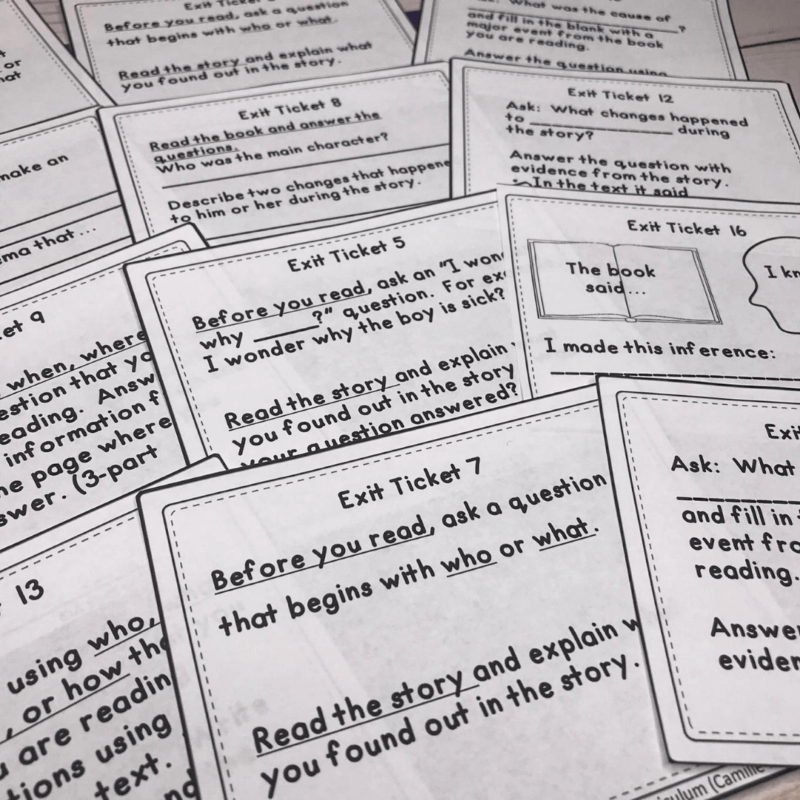 Exit Ticket
Before you read, ask a question
that begins with who or what.
Read the story and explain what
you found out in the story.
What was the cause of
?
and fill in the blank with a
major event from the book
you are reading.
Answer the question using
or
Exit Ticket 8
Read the book and answer the
questions.
Who was the main character?
Describe two changes that happene
to him or her during the story.
Exit Ticket 12
Ask: What changes happened
to ____________ during
the story?
Answer the question with
evidence from the story.
In the text it said
make an
ma that...
Exit Ticket 5
Before you read, ask an "I won
why ____?" question. For ex
I wonder why the boy is sick?
Read the story and explain
you found out in the story
your question answered?
Exit Ticket 16
The book
said...
I kn
I made this inference:
et 9
when, where
estion that yo
eading. Answ
information f
he page where
swer. (3-part
Exit Ticket 7
Before you read, ask a question
that begins with who or what.
Read the story and explain w
you found out in the story.
Exi
Ask: What
and fill in
event fro
reading.
Answe
eviden
13
using who,
, or how the
u are readin
tions using
text.
nd
culum (Camille